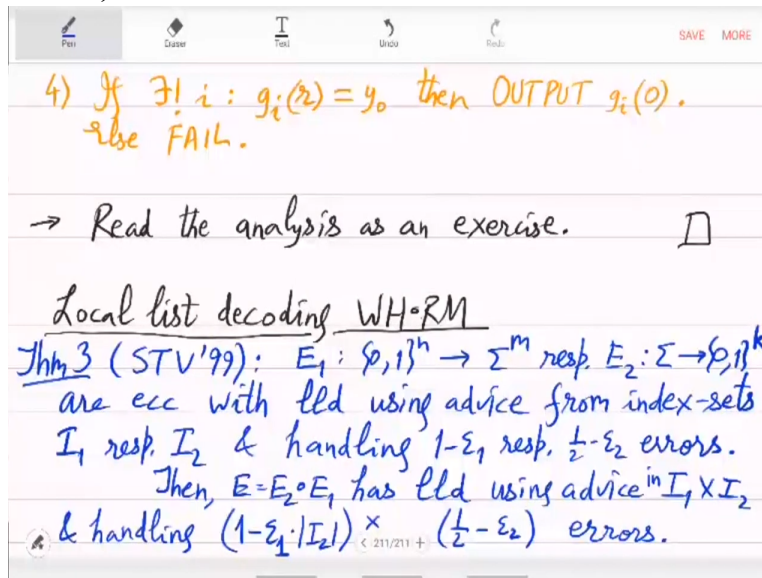 Pen Eraser Text Undo Redo SAVE MORE
4) If ∃! i : g_i(r) = y_0 then OUTPUT g_i(0).
else FAIL.
→ Read the analysis as an exercise. □
Local list decoding WH∘RM
Thm 3 (STV'99): E_1 : {0,1}^n → Σ^m resp. E_2 : Σ → {0,1}^k
are ecc with lld using advice from index-sets
I_1 resp. I_2 & handling 1-ε_1 resp. 1/2-ε_2 errors.
Then, E = E_2∘E_1 has lld using advice in I_1 × I_2
& handling (1-ε_1·|I_2|) × (1/2 - ε_2) errors.
211/211